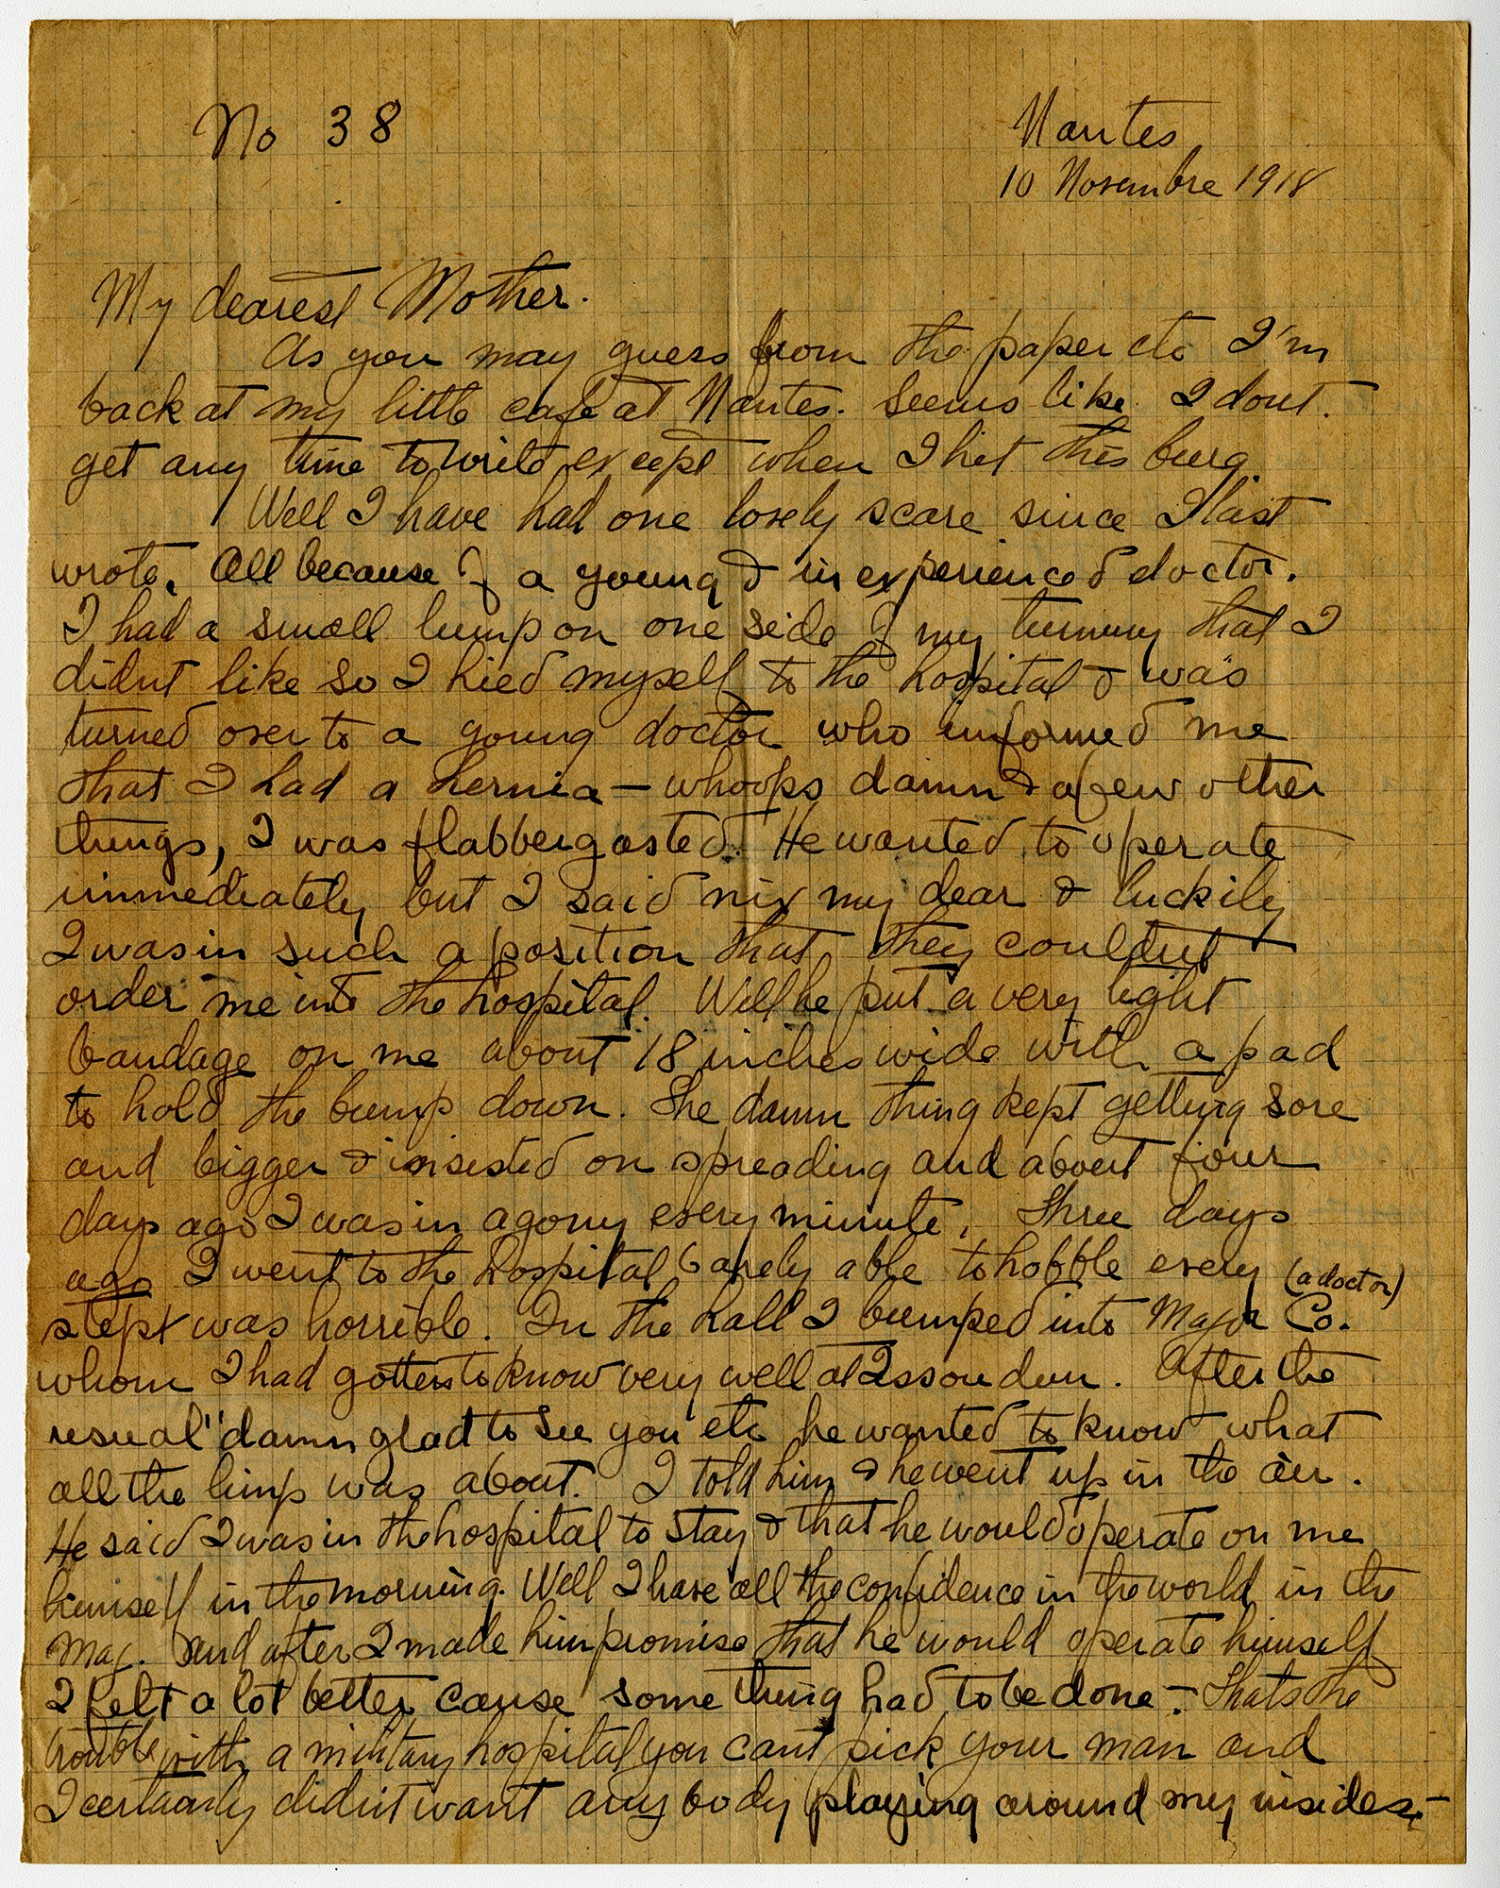 No 38
Nantes
10 Novembre 1918
My dearest Mother.
As you may guess from the paper etc I'm
back at my little cafe at Nantes. Seems like I dont.
get any time to write except when I hit this burg.
Well I have had one lovely scare since I last
wrote. All because of a young & inexperienced doctor.
I had a small lump on one side of my tummy that I
didnt like so I hied myself to the hospital & was
turned over to a young doctor who informed me
that I had a hernia — whoops damn & a few other
things, I was flabbergasted. He wanted to operate
immediately but I said nix my dear & luckily
I was in such a position that they couldnt
order me into the hospital. Well he put a very tight
bandage on me about 18 inches wide with a pad
to hold the bump down. The damn thing kept getting sore
and bigger & insisted on spreading and about four
days ago I was in agony every minute. Three days
ago I went to the hospital barely able to hobble every
step was horrible. In the hall I bumped into Major Co. (a doctor)
whom I had gotten to know very well at Issoudun. After the
usual "damn glad to see you etc he wanted to know what
all the limp was about. I told him & he went up in the air.
He said I was in the hospital to stay & that he would operate on me
himself in the morning. Well I have all the confidence in the world in the
Maj. and after I made him promise that he would operate himself
I felt a lot better cause something had to be done — Thats the
trouble with a military hospital you cant pick your man and
I certainly didnt want any body playing around my insides. —